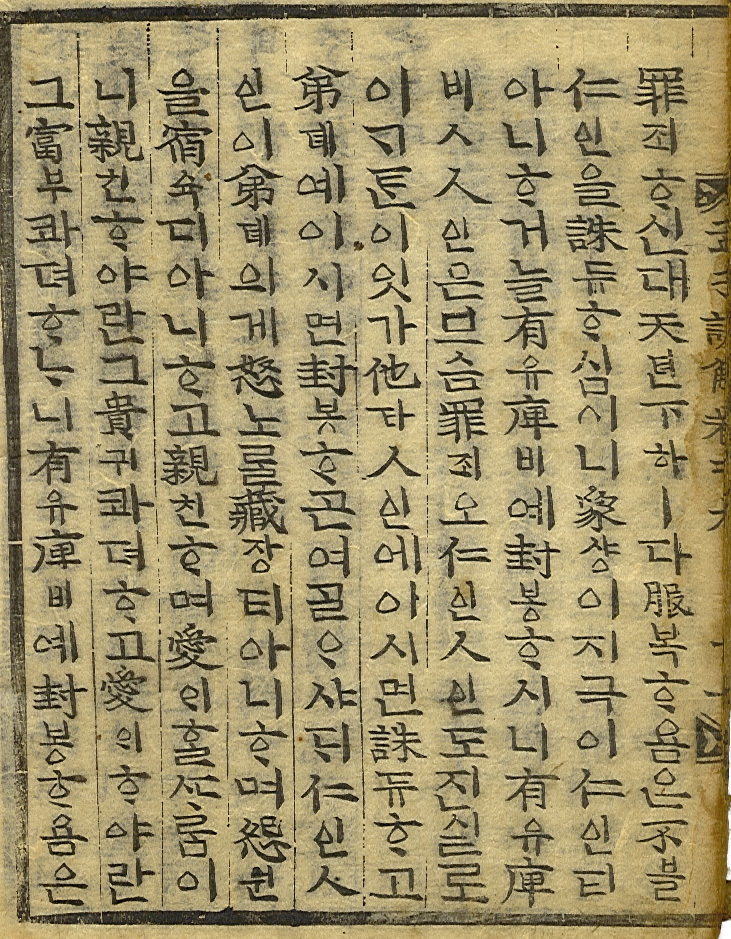 罪죄ᄒᆞ신대天텬下하ㅣ다服복ᄒᆞ욤ᄋᆞᆫ不블
仁인을誅듀ᄒᆞ심이니象샹이지극이仁인티
아니ᄒᆞ거늘有유庳비예封봉ᄒᆞ시니有유庳
비ㅅ人인은므슴罪죄오仁인人인도진실로
이ᄀᆞᄐᆞᆫ이잇가他타人인에아시면誅듀ᄒᆞ고
弟뎨예이시면封봉ᄒᆞ곤여ᄀᆞᆯᄋᆞ샤ᄃᆡ仁인人
인이弟뎨의게怒노ᄅᆞᆯ藏장티아니ᄒᆞ며怨원
을宿슉디아니ᄒᆞ고親친ᄒᆞ며愛ᄋᆡᄒᆞᆯᄯᆞᄅᆞᆷ이
니親친ᄒᆞ야란그貴귀콰뎌ᄒᆞ고愛ᄋᆡᄒᆞ야란
그富부콰뎌ᄒᆞᄂᆞ니有유庳비예封봉ᄒᆞ욤은